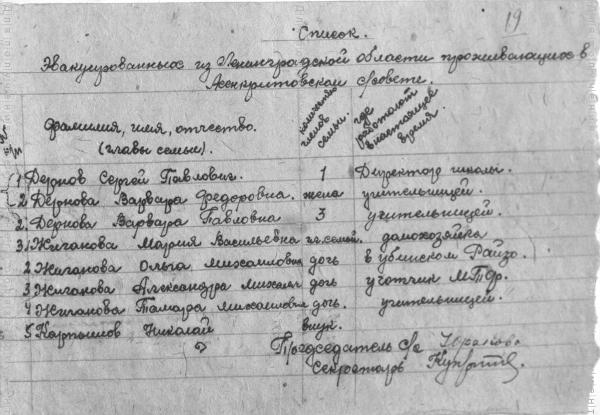 19
Список.
Эвакуированных из Ленинградской области проживающих в
Асенкритовском с/совете.
№№ п/п
фамилия, имя, отчество.
(главы семьи).
количество членов семьи.
где работают в настоящее время.
1 Дернов Сергей Павлович. 1 Директор школы.
2 Дернова Варвара Федоровна. жена учительницей.
2. Дернова Варвара Павловна 3 учительницей.
3. Жиганова Мария Васильевна гл. семьи. домохозяйка
2 Жиганова Ольга Михайловна дочь в Убинском Райзо.
3 Жиганова Александра Михайл дочь учотчик МТФ.
4 Жиганова Тамара Михайловна дочь. учительницей.
5 Николай внук.
Председатель с/с
Секретарь